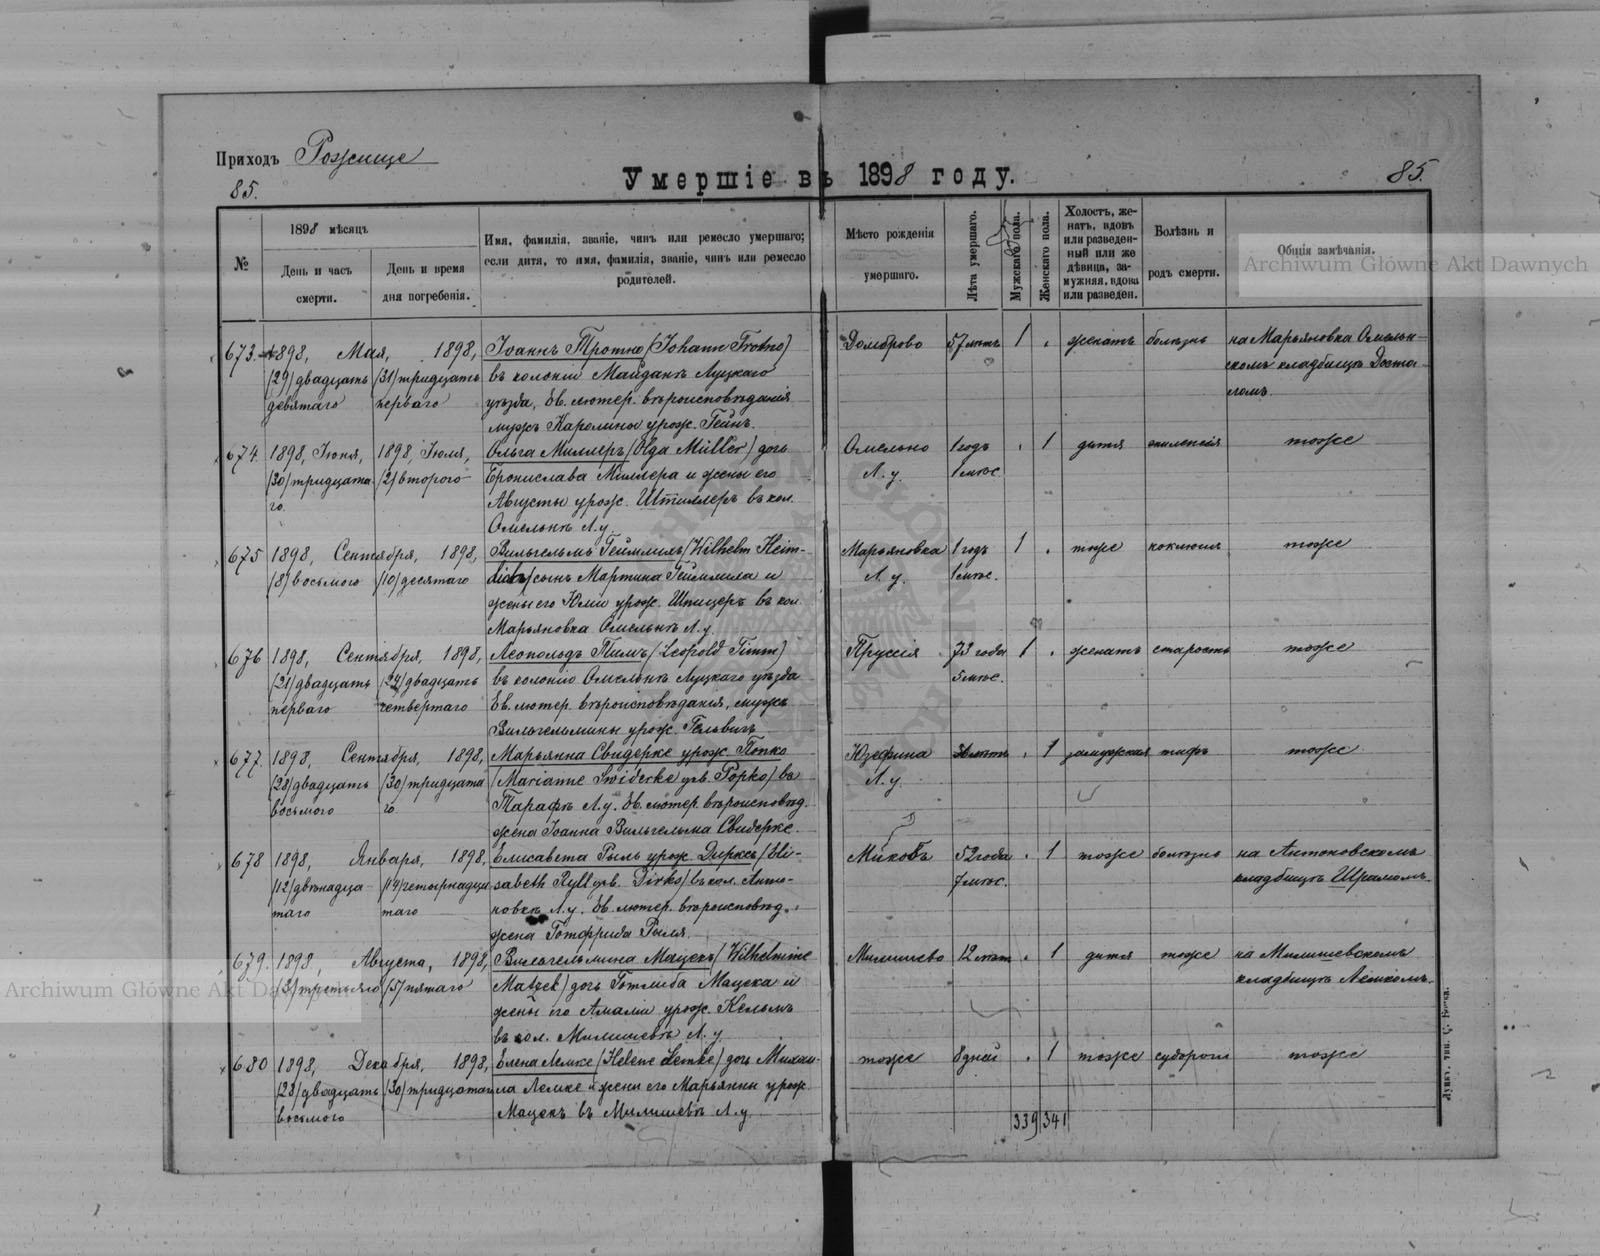 Приходъ Рожище
85.
Умершіе въ 1898 году.
85.
№
1898 мѣсяцъ
День и часъ смерти.
День и время дня погребенія.
Имя, фамилія, званіе, чинъ или ремесло умершаго;
если дитя, то имя, фамилія, званіе, чинъ или ремесло
родителей.
Мѣсто рожденія
умершаго.
Лѣта умершаго.
Мужскаго пола.
Женскаго пола.
Холостъ, же-
натъ, вдовъ
или разведен-
ный или же
дѣвица, за-
мужняя, вдова
или разведен.
Болѣзнь и
родъ смерти.
Общія замѣчанія.
Archiwum Główne Akt Dawnych
673. 1898, Мая, 1898, Іоаннъ Тротно (Johann Trotno) Домброво 57 лѣтъ 1 . женатъ болѣзнь на Марьяновка Омельн-
(29) двадцать (31) тридцать въ колоніи Майданѣ Луцкаго скомъ кладбищѣ Доста-
девятаго перваго уѣзда, Ев. лютер. вѣроисповѣданія ломъ.
мужъ Каролины урож. Гейнъ.
674 1898, Іюня, 1898, Іюля, Ольга Миллеръ (Olga Müller) дочь Омельно 1 годъ . 1 дитя эпилепсія тоже
(30) тридцата- (2) второго Бронислава Миллера и жены его Л. у. 1 мѣс.
го. Августы урож. Штиллеръ въ кол.
Омельнѣ Л. у.
675 1898, Сентября, 1898, Вильгельмъ Геймлихъ (Wilhelm Heim- Марьяновка 1 годъ 1 . тоже коклюшъ тоже
(8) восьмого (10) десятаго lich) сынъ Мартина Геймлиха и Л. у. 1 мѣс.
жены его Юліи урож. Шпицеръ въ кол.
Марьяновка Омельнѣ Л. у.
676 1898, Сентября, 1898, Леопольдъ Тимъ (Leopold Timm) Пруссія 73 года 1 . женатъ старость тоже
(21) двадцать (24) двадцать въ колоніи Омельнѣ Луцкаго уѣзда 5 мѣс.
перваго четвертаго Ев. лютер. вѣроисповѣданія, мужъ
Вильгельмины урож. Гельвигъ
677. 1898, Сентября, 1898, Марьянна Свидерке урож. Попко Юзефина . 1 замужняя тифъ тоже
(28) двадцать (30) тридцата (Marianne Swiderke geb. Popko) въ Л. у.
восьмого го Тарафѣ Л. у. Ев. лютер. вѣроисповѣд.
жена Іоанна Вильгельма Свидерке.
678 1898, Января, 1898, Елисавета Рыль урож. Дирксъ (Eli- 52 года . 1 тоже болѣзнь на Антоновскомъ
(12) двѣнадца- (14) четырнадца sabeth Ryll geb. Dirks) въ кол. Анто- 7 мѣс. кладбищѣ Шрамомъ.
таго таго новкѣ Л. у. Ев. лютер. вѣроисповѣд.
жена Готфрида Рыля.
679. 1898, Августа, 1898, Вильгельмина Мацекъ (Wilhelmine Милишево 12 лѣтъ . 1 дитя тоже на Милишевскомъ
(3) третьяго (5) пятаго Matzek) дочь Готлиба Мацека и кладбищѣ Лемкомъ.
жены его Амаліи урож. Кельмъ
въ кол. Милишевѣ Л. у.
Archiwum Główne Akt Dawnych
680 1898, Декабря, 1898, Елена Лемке (Helene Lemke) дочь Михаи- тоже 8 дней . 1 тоже судороги тоже
(28) двадцать (30) тридцатаго ла Лемке и жены его Марьянны урож.
восьмого Мацекъ въ Милишевѣ Л. у.
339 341